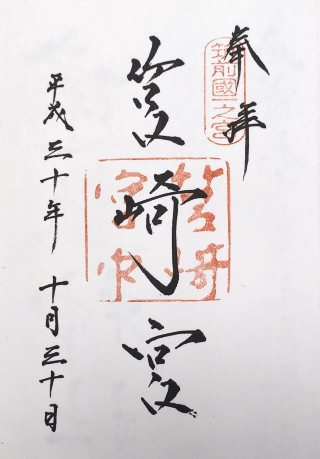 奉拝
筑前國一之宮
筥崎宮
筥崎
宮印
平成三十年 十月三十日